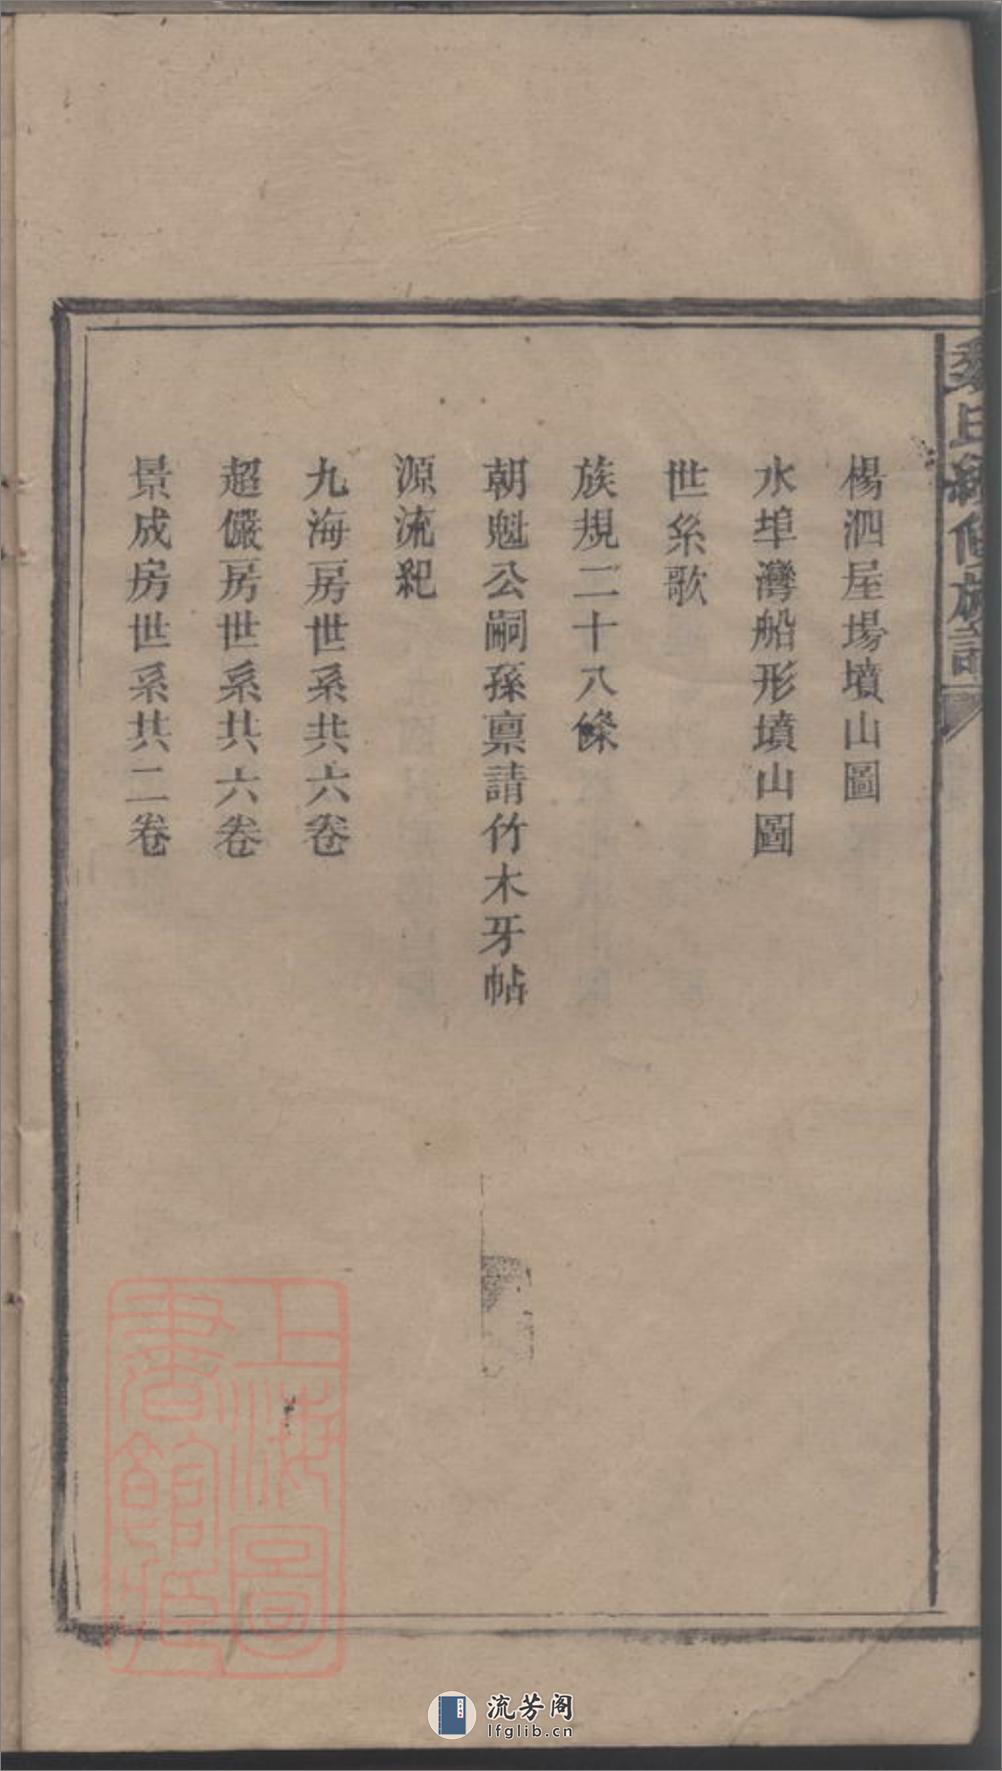 楊泗屋場墳山圖
水埠灣船形墳山圖
世系歌
族規二十八條
朝魁公嗣孫稟請竹木牙帖
源流紀
九海房世系共六卷
超儼房世系共六卷
景成房世系共二卷
上海圖
書館藏
流芳阁
lfglib.cn